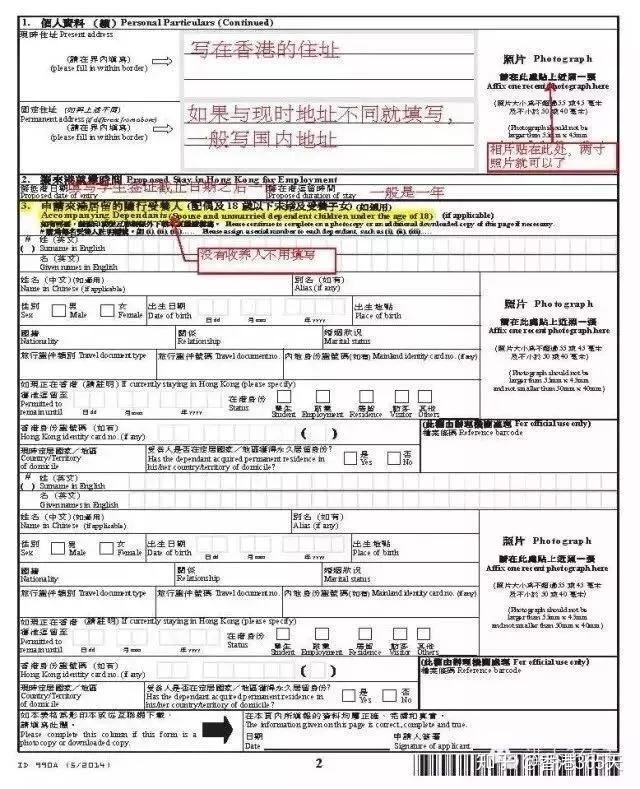 1. 個人資料 (續) Personal Particulars (Continued)
現時住址 Present address
(請在界內填寫)
(please fill in within border)
写在香港的住址
照片 Photograph
請在此處貼上近照一張
Affix one recent photograph here
(照片大小為不超過55 或45 毫米
及不小於50 或40 毫米)
(Photograph should not be
larger than 55mm x 45mm
相片贴在此处，两寸
照片就可以了
固定住址 (如與上述不同)
Permanent address (if different from above)
(請在界內填寫)
(please fill in within border)
如果与现时地址不同就填写，
一般写国内地址
2. 擬來港就業時間 Proposed Stay in Hong Kong for Employment
擬抵港日期
Proposed date of entry
填写学生签证截止日期之后一
擬在港逗留時間
Proposed duration of stay
一般是一年
3. 申請來港居留的隨行受養人 (配偶及18 歲以下未婚及受養子女) (如適用)
Accompanying Dependants (Spouse and unmarried dependent children under the age of 18) (if applicable)
Please continue to complete on a photocopy or an additional downloaded copy of this page if necessary.
Please assign a serial number to each dependant, such as (i), (ii), (iii)......
没有收养人不用填写
# 姓 (英文)
Surname in English
名 (英文)
Given names in English
姓名 (中文) (如適用)
Name in Chinese (if applicable)
別名 (如有)
Alias (if any)
性別
Sex
男
Male
女
Female
出生日期
Date of birth
日 dd 月 mm 年 yyyy
出生地點
Place of birth
國籍
Nationality
關係
Relationship
婚姻狀況
Marital status
旅行證件類別 Travel document type
旅行證件號碼 Travel document no.
內地身份證號碼 (如有) Mainland identity card no. (if any)
照片 Photograph
請在此處貼上近照一張
Affix one recent photograph here
(照片大小為不超過55 或45 毫米
及不小於50 或40 毫米)
(Photograph should not be
larger than 55mm x 45mm
and not smaller than 50mm x 40mm)
如現正在香港 (請註明) If currently staying in Hong Kong (please specify)
獲准逗留至
Permitted to
remain until
日 dd 月 mm 年 yyyy
在港身份
Status
學生
Student
就業
Employment
居留
Residence
訪客
Visitor
其他
Others
香港身份證號碼 (如有)
Hong Kong identity card no. (if any)
( )
(此欄由辦理機關處理 For official use only)
檔案條碼 Reference barcode
現時定居國家／地區
Country/Territory
of domicile
受養人是否在定居國家／地區獲得永久居留身份?
Has the dependant acquired permanent residence in
his/her country/territory of domicile?
是
Yes
否
No
# 姓 (英文)
Surname in English
名 (英文)
Given names in English
姓名 (中文) (如適用)
Name in Chinese (if applicable)
別名 (如有)
Alias (if any)
性別
Sex
男
Male
女
Female
出生日期
Date of birth
日 dd 月 mm 年 yyyy
出生地點
Place of birth
國籍
Nationality
關係
Relationship
婚姻狀況
Marital status
旅行證件類別 Travel document type
旅行證件號碼 Travel document no.
內地身份證號碼 (如有) Mainland identity card no. (if any)
照片 Photograph
請在此處貼上近照一張
Affix one recent photograph here
(照片大小為不超過55 或45 毫米
及不小於50 或40 毫米)
(Photograph should not be
larger than 55mm x 45mm
and not smaller than 50mm x 40mm)
如現正在香港 (請註明) If currently staying in Hong Kong (please specify)
獲准逗留至
Permitted to
remain until
日 dd 月 mm 年 yyyy
在港身份
Status
學生
Student
就業
Employment
居留
Residence
訪客
Visitor
其他
Others
香港身份證號碼 (如有)
Hong Kong identity card no. (if any)
( )
(此欄由辦理機關處理 For official use only)
檔案條碼 Reference barcode
現時定居國家／地區
Country/Territory
of domicile
受養人是否在定居國家／地區獲得永久居留身份?
Has the dependant acquired permanent residence in
his/her country/territory of domicile?
是
Yes
否
No
如本表格為影印本或從互聯網下載，
請填寫此欄。
Please complete this column if this form is a
photocopy or downloaded copy.
在本頁內所填報的資料均屬正確、完備和真實。
The information given on this page is correct, complete and true.
日期
Date
申請人簽署
Signature of applicant
ID 990A (5/2014)
2
知乎 @香港365天